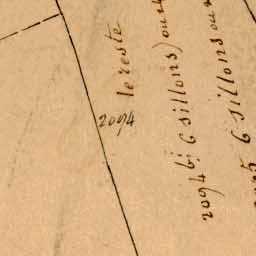 le reste
2094
2094 bis (6 sillons) ou
6 sillons ou